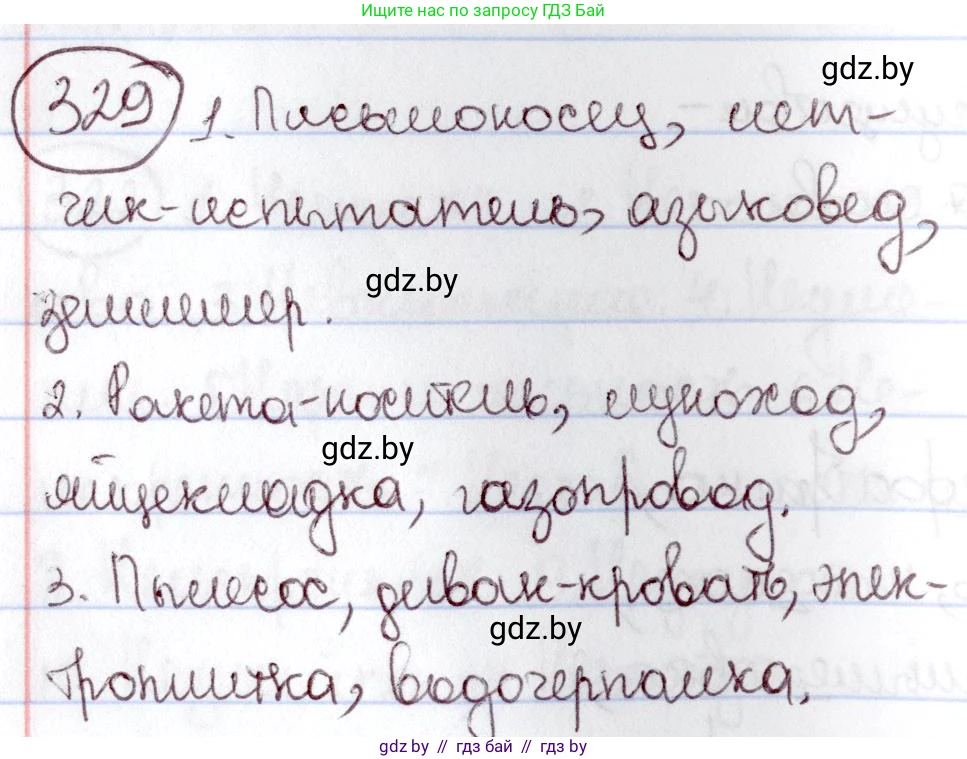 Ищите нас по запросу ГДЗ Бай
gdz.by
329 1. Письмоносец, лет-
чик-испытатель, языковед,
gdz.by
землемер.
2. Ракета-носитель, луноход,
gdz.by
яйцекладка, газопровод.
3. Пылесос, диван-кровать, элек-
gdz.by
троплитка, водочерпалка.
gdz by // гдз бай // гдз by